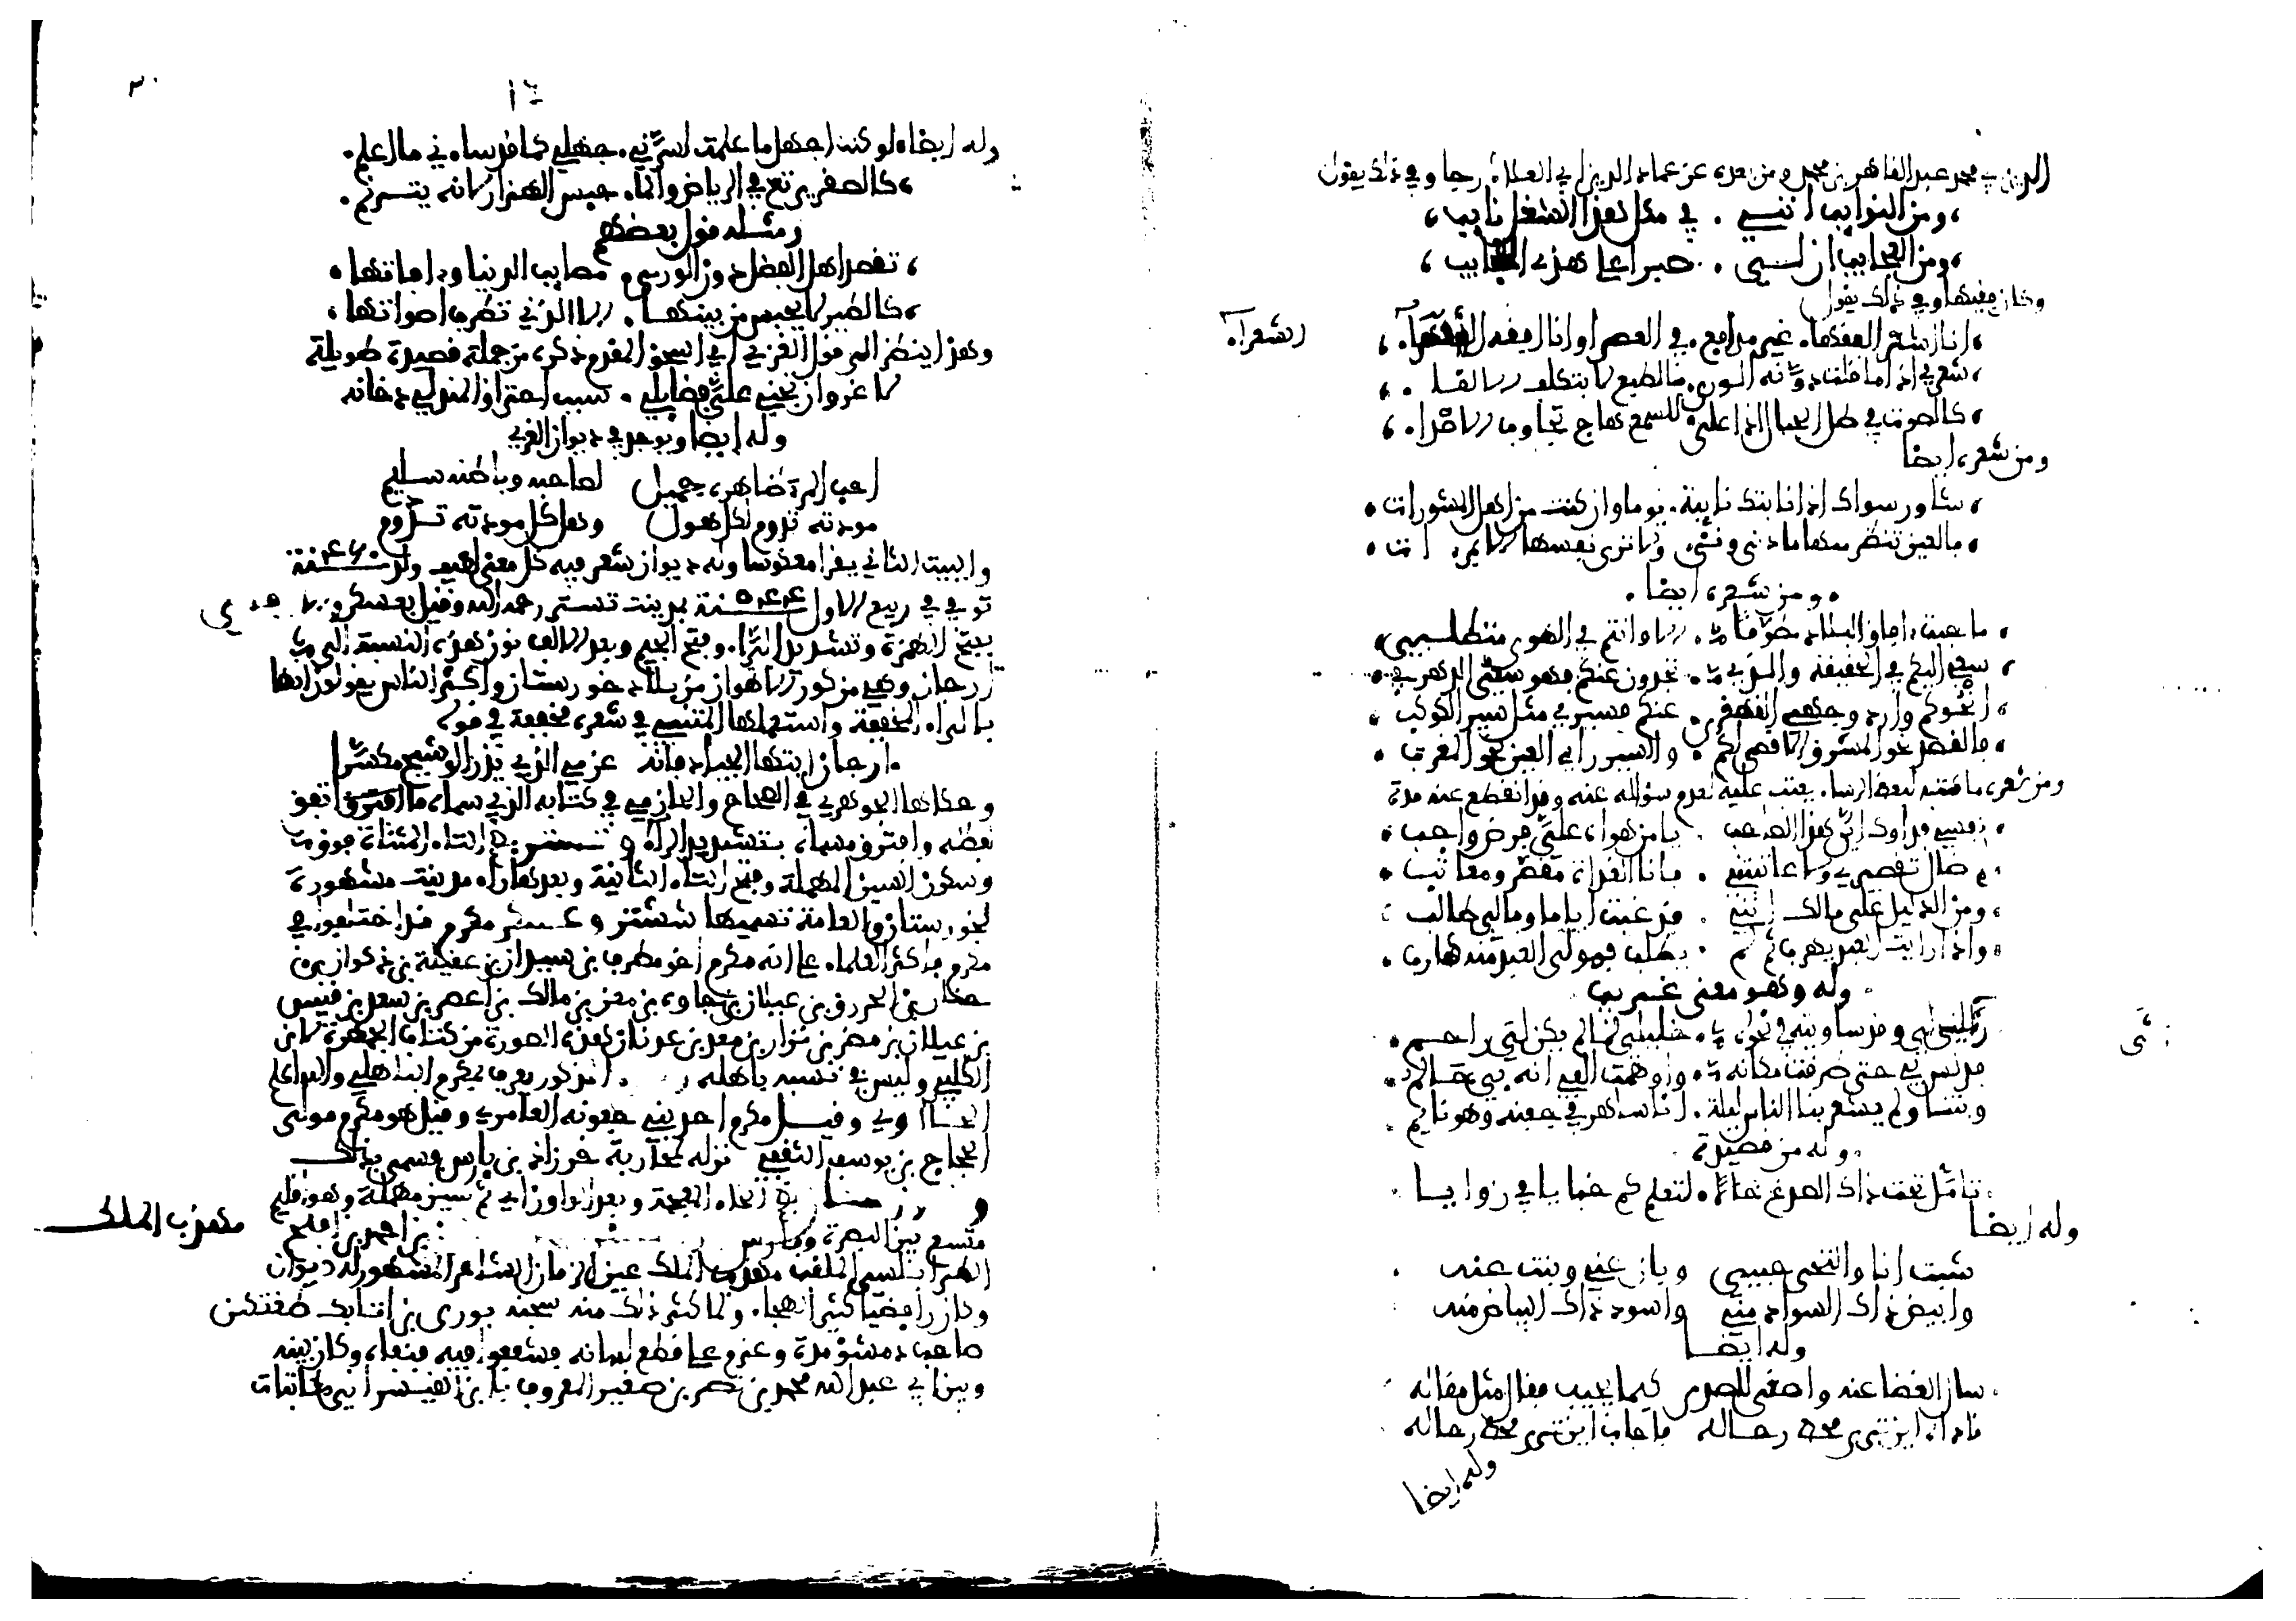 الدين أبي محمد عبد القاهر بن محمد ومن بعده عن عماد الدين أبي العلاء رجا وفي ذلك يقول
ومن النوايب انني في مثل هذا الشغل نايب
ومن العجايب ان لي صبرا على هذي العجايب
وكان فقيها وفي ذلك يقول
انا اشعر الفقهاء غير مدافع في العصر او انا افقه الشعرآ
شعري اذا ما قلت دونه الورى بالطبع لا بتكلف الالقا
كالصوت في ظل الجبال اذا علا للسمع هاج تجاوب الاصدا
ومن شعره ايضا
شاور سواك اذا نابتك نايبة يوما وان كنت من اهل المشورات
فالعين تنظر منها ما دنى ونئى ولا ترى نفسها الا بمرءات
ومن شعره ايضا
ما جبت افاق البلاد مطوفا الا وانتم في الهوى متطلبي
سعيي اليكم في الحقيقة والذي تجدون عنكم فهو سعي الدهر بي
انحوكم وارد وجهي القهقرى عنكم فسيري مثل سير الكوكب
فالقصد نحو المشرق الاقصى لكم والسير راي العين نحو المغرب
ومن شعره ما كتبه لبعض الرسا يعتب عليه لعدم سؤاله عنه وقد انقطع عنه مدة
نفسي فداوك ايهذا الصاحب يا من هواه علي فرض واجب
لم طال تقصيري وما عاتبتني فانا الغداة مقصر ومعاتب
ومن الدليل على ملالك انني قد غبت اياما وما لي طالب
واذا رايت العبد يهرب ثم لم يطلب فمولى العبد منه هارب
وله وهو معنى غريب
رثى لي وقد ساويته في نحوله خيالي لما لم يكن لي راحم
فدلس بي حتى طرقت مكانه واوهمت الفي انه بي حالم
وبتنا ولم يشعر بنا الناس ليلة انا ساهر في جفنه وهو نايم
وله من قصيدة
تامل تحت ذاك الصدغ خالا لتعلم كم خبايا في زوايا
وله ايضا
شبت انا والتحى حبيبي وبان عني وبنت عنه
وابيض ذاك السواد مني واسود ذاك البياض منه
وله ايضا
سال الفضا عنه واصغى للصدى كيما يجيب فقال مثل مقاله
ناداه اين ترى محط رحاله فاجاب اين ترى محط رحاله
وله ايضا
١٦
وله ايضا لو كنت اجهل ما علمت لسرني جهلي كما قد ساءني ما اعلم
كالصقر يرتع في الرياض وانما حبس الهزار لانه يترنم
ومثله قول بعضهم
تقصد اهل الفضل دون الورى مصايب الدنيا وءافاتها
كالطير لا يحبس من بينها الا الذي تطرب اصواتها
وهذا ينظر الى قول الغزي ابي اسحق المقدم ذكره من جملة قصيدة طويلة
لا غرو ان تجني علي فضايلي سبب احتراق المندلي دخانه
وله ايضا ويوجد في ديوان الغزي
احب المرء ظاهره جميل لصاحبه وباطنه سليم
مودته تدوم لكل هول وهل كل مودته تدوم
والبيت الثاني يقرا معكوسا وله ديوان شعر فيه كل معنى لطيف ولد سنة ٤٦٠
توفي في ربيع الاول سنة ٥٤٤ بمدينة تستر رحمه الله وقيل بعسكر
بفتح الهمزة وتشديد الراء وفتح الجيم وبعد الالف نون هذه النسبة الى
ارجان وهي من كور الاهواز من بلاد خورستان واكثر الناس يقولون انها
بالراء المخففة واستعملها المتنبي في شعره مخففة في قوله
ارجان ايتها الجياد فانه عزمي الذي يذر الوشيج مكسرا
وحكاها الجوهري في الصحاح والحازمي في كتابه الذي سماه ما اتفق
لفظه وافترق مسماه بتشديد الراء و تستر بضم التاء المثناة فوق
وسكون السين المهملة وفتح التاء الثانية وبعدها راء مدينة مشهورة
بخورستان والعامة تسميها ششتر و عسكر مكرم قد اختلفوا في
مكرم فاكثر العلماء على انه مكرم اخو مطرف بن سيدان بن عقيلة بن ذكوان بن
حيان بن الخرزق بن عيلان بن جاوه بن معن بن مالك بن اعصر بن سعد بن قيس
بن عيلان بن مضر بن نزار بن معد بن عدنان هكذا الصورة من كتاب الجمهرة لابن
الكلبي وليس في نسبه باهله المذكور يعرف بمكرم الباهلي والله اعلم
الحاوي وقيل مكرم احد بني جعونه العامري وقيل هو مكرم مولى
الحجاج بن يوسف الثقفي نزله لمحاربة خرزاد بن باس فسمي بذلك
وخورستان بضم الخاء المعجمة وبعد الواو زاي ثم سين مهملة وهو اقليم
متسع بين البصرة وفارس بن احمد بن افلح
مهذب الملك
الطرابلسي الملقب مهذب الملك عين الزمان الشاعر المشهور له ديوان
وكان رافضيا كثير الهجاء ولما كثر ذلك منه سجنه بوري بن اتابك طغتكين
صاحب دمشق مدة وعزم على قطع لسانه فشفعوا فيه فنفاه وكان بينه
وبين ابي عبد الله محمد بن نصر بن صغير المعروف بابن القيسراني مكاتبات